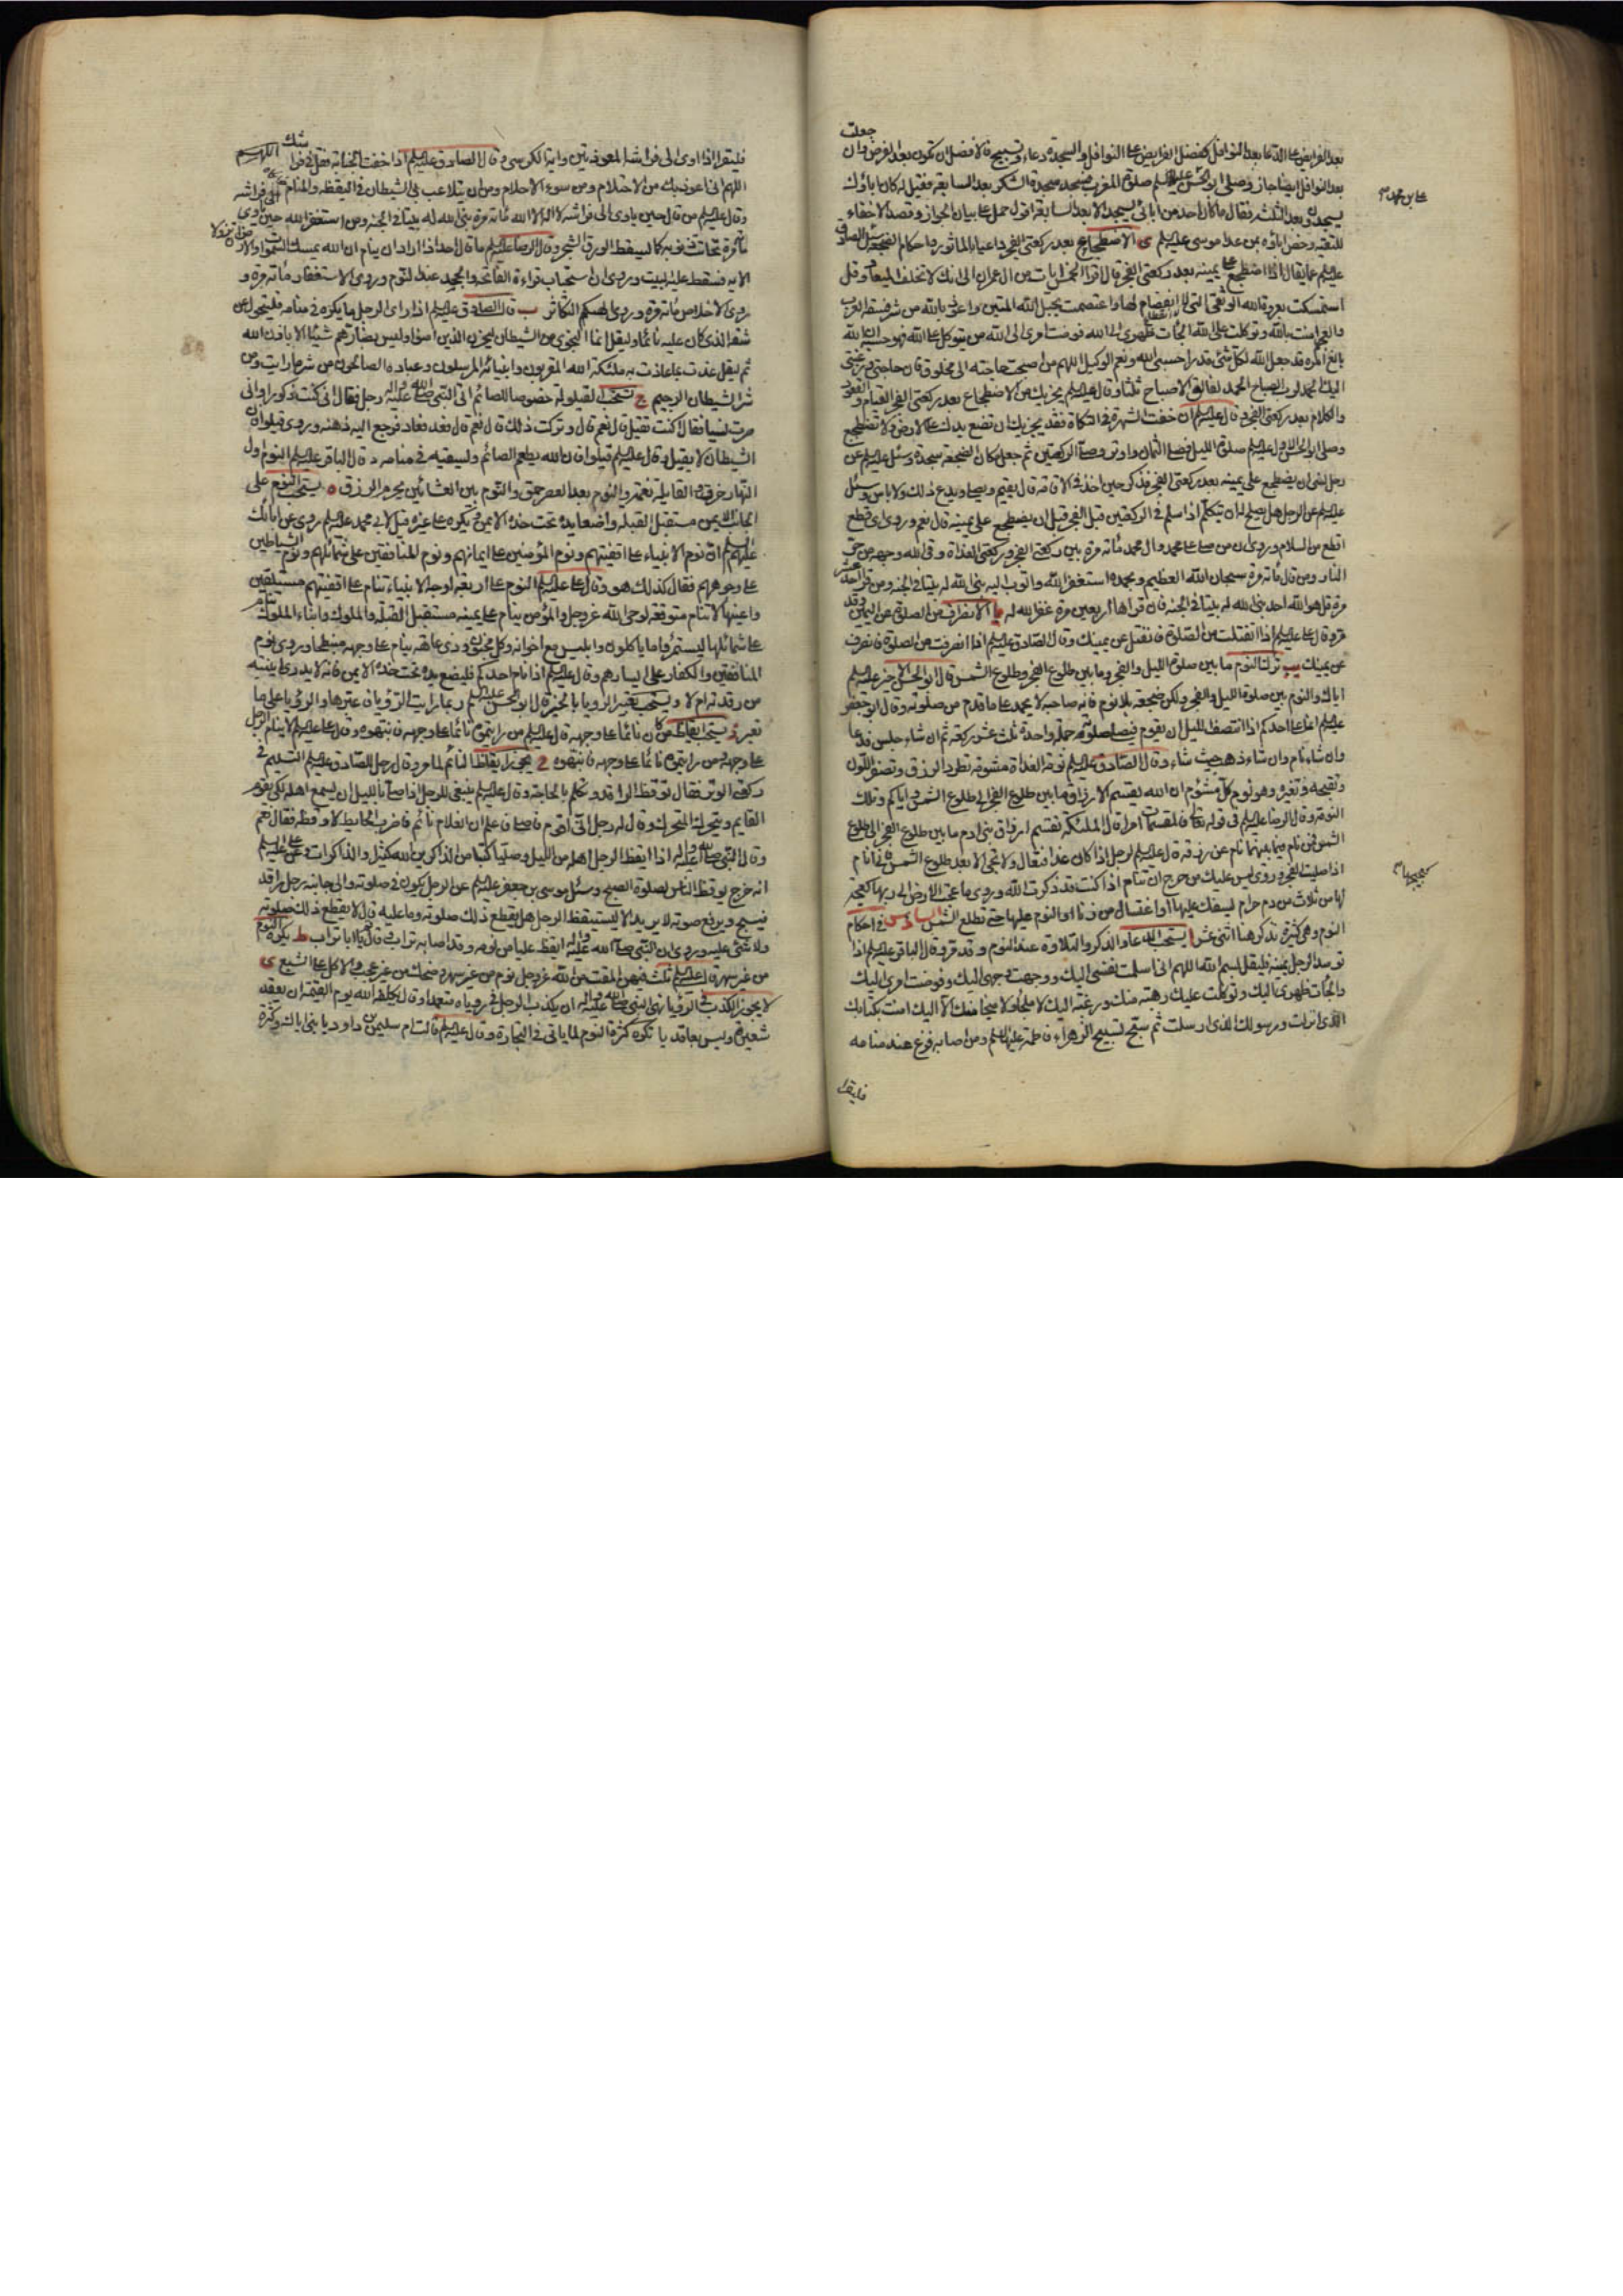 بعد الفرايض على الدعا بعد النوافل كفضل الفرايض على النوافل والسجدة دعاء وتسبيح فالافضل ان تكون بعد الفرض وان جعلت
بعد النوافل ايضا جاز وصلى ابو الحسن عليه السلم صلوة المغرب فسجد سجدة الشكر بعد السابعة فقيل له كان اباؤك
يسجدون بعد الثلثة فقال ما كان احد من ابائى يسجد الا بعد السابعة اقول حمل على بيان الجواز وقصد الاخفاء
للتقية وخص اباؤه بمن عدا موسى عليه السلم ى الاضطجاع بعد ركعتى الفجر داعيا بالماثور واحكام الضجعة سئل الصادق
عليه السلم عما يقال اذا اضطجع على يمينه بعد ركعتى الفجر قال اقرا الخمس ايات من ال عمران الى انك لا تخلف الميعاد وقل
استمسكت بعروة الله الوثقى التى لا انفصام لها واعتصمت بحبل الله المتين واعوذ بالله من شر فسقة العرب
والعجم امنت بالله وتوكلت على الله الجات ظهرى الى الله فوضت امرى الى الله من يتوكل على الله فهو حسبه ان الله
بالغ امره قد جعل الله لكل شئ قدرا حسبى الله ونعم الوكيل اللهم من اصبحت حاجته الى مخلوق فان حاجتى ورغبتى
اليك الحمد لرب الصباح الحمد لفالق الاصباح ثلثا وقال عليه السلم يجزيك من الاضطجاع بعد ركعتى الفجر القيام والقعود
والكلام بعد ركعتى الفجر وقال عليه السلم ان خفت الشهرة فى التكاة فقد يجزيك ان تضع يدك على الارض ولا تضطجع
وصلى ابو الحسن الاول عليه السلم صلوة الليل فصلى الثمان واوتر وصلى الركعتين ثم جعل مكان الضجعة سجدة وسئل عليه السلم عن
رجل نسى ان يضطجع على يمينه بعد ركعتى الفجر فذكر حين اخذ فى الاقامة قال يقيم ويصلى ويدع ذلك ولا باس وسئل
عليه السلم عن الرجل هل يصلح له ان يتكلم اذا سلم فى الركعتين قبل الفجر قبل ان يضطجع على يمينه قال نعم وروى اى قطع
اقطع من السلام وروى ان من صلى على محمد وال محمد مائة مرة بين ركعتى الفجر وركعتى الغداة وقى الله وجهه من حر
النار ومن قال مائة مرة سبحان الله العظيم وبحمده استغفر الله واتوب اليه بنى الله له بيتا فى الجنة ومن قرا احد عشر
مرة قل هو الله احد بنى الله له بيتا فى الجنة فان قراها اربعين مرة غفر الله له يا الانصراف من الصلوة عن اليمين وقد
مر وقال على عليه السلم اذا انفتلت من الصلوة فانفتل عن يمينك وقال الصادق عليه السلم اذا انصرفت من الصلوة فانصرف
عن يمينك يب ترك النوم ما بين صلوة الليل والفجر وما بين طلوع الفجر وطلوع الشمس قال ابو الحسن الاخير عليه السلم
اياك والنوم بين صلوة الليل والفجر ولكن ضجعة بلا نوم فانه صاحبه لا يحمد على ما قدم من صلوته وقال ابو جعفر
عليه السلم انما على احدكم اذا انتصف الليل ان يقوم فيصلى صلوته جملة واحدة ثلث عشر ركعة ثم ان شاء جلس فدعا
وان شاء نام وان شاء ذهب حيث شاء وقال الصادق عليه السلم نومة الغداة مشومة تطرد الرزق وتصفر اللون
وتقبحه وتغيره وهو نوم كل مشؤم ان الله يقسم الارزاق ما بين طلوع الفجر الى طلوع الشمس واياكم وتلك
النومة وقال الرضا عليه السلم فى قوله تعالى فالمقسمات امرا قال الملئكة تقسم ارزاق بنى ادم ما بين طلوع الفجر الى طلوع
الشمس فمن نام فيما بينهما نام عن رزقه وقال عليه السلم لرجل اذا كان غدا فتعال ولا تجئ الا بعد طلوع الشمس فانى انام
اذا صليت الفجر وروى ليس عليك من حرج ان تنام اذا كنت قد ذكرت الله وروى ما عجت الارض الى ربها كعجتها
من ثلاث من دم حرام يسفك عليها او اغتسال من زنا او النوم عليها حتى تطلع الشمس السادس فى احكام
النوم وهى كثيرة نذكر هنا اثنى عشر ا يستحب الدعاء والذكر والتلاوة عند النوم وقد مر وقال الباقر عليه السلم اذا
توسد الرجل يمينه فليقل بسم الله اللهم انى اسلمت نفسى اليك ووجهت وجهى اليك وفوضت امرى اليك
والجات ظهرى اليك وتوكلت عليك رهبة منك ورغبة اليك لا ملجا ولا منجا منك الا اليك امنت بكتابك
الذى انزلت ورسولك الذى ارسلت ثم يسبح تسبيح الزهراء فاطمة عليها السلم ومن اصابه فزع عند منامه
فليقرا
على بن محمد
فليقرا اذا اوى الى فراشه المعوذتين واية الكرسى وقال الصادق عليه السلم اذا خفت الجنابة فقل فى فراشك اللهم
اللهم انى اعوذ بك من الاحتلام ومن سوء الاحلام ومن ان يتلاعب بى الشيطان فى اليقظة والمنام
وقال عليه السلم من قال حين ياوى الى فراشه لا اله الا الله مائة مرة بنى الله له بيتا فى الجنة ومن استغفر الله حين ياوى الى فراشه
مائة مرة تحاتت ذنوبه كما يسقط الورق الشجر وقال الرضا عليه السلم ما قال احد اذا اراد ان ينام ان الله يمسك السموات والارض ان تزولا
الاية فسقط عليه البيت وروى ان استحباب قراءة الفاتحة والجحد عند النوم وروى الاستغفار مائة مرة و
روى الاخلاص مائة مرة وروى الهيكم التكاثر ب قال الصادق عليه السلم اذا راى الرجل ما يكره فى منامه فليتحول عن
شقه الذى كان عليه نائما وليقل انما النجوى من الشيطان ليحزن الذين امنوا وليس بضارهم شيئا الا باذن الله
ثم ليقل عذت بما عاذت به ملئكة الله المقربون وانبيائه المرسلون وعباده الصالحون من شر ما رايت ومن
شر الشيطان الرجيم ج يستحب القيلولة خصوصا للصائم اتى النبى صلى الله عليه واله رجل فقال انى كنت ذكورا وانى
صرت نسيا فقال اكنت تقيل قال نعم قال وتركت ذلك قال نعم قال فعد فعاد فرجع اليه ذهنه وروى قيلوا فان
الشيطان لا يقيل وقال عليه السلم قيلوا فان الله يطعم الصائم ويسقيه فى منامه د قال الباقر عليه السلم النوم اول
النهار خرق والقايلة نعمة والنوم بعد العصر حمق والنوم بين العشائين يحرم الرزق ه يستحب النوم على
الجانب الايمن مستقبل القبلة واضعا يده تحت خده الايمن ويكره على غيره قيل لابى محمد عليه السلم روى عن ابائك
عليهم السلم ان نوم الانبياء على اقفيتهم ونوم المؤمنين على ايمانهم ونوم المنافقين على شمائلهم ونوم الشياطين
على وجوههم فقال كذلك هو وقال على عليه السلم النوم على اربعة اوجه الانبياء تنام على اقفيتهم مستلقين
واعينها لا تنام متوقعة لوحى الله عز وجل والمؤمن ينام على يمينه مستقبل القبلة والملوك وابناء الملوك تنام
على شمائلها ليستمرؤا ما ياكلون وابليس مع اخوانه وكل مجنون وذى عاهة ينام على وجهه منبطحا وروى نوم
المنافقين والكفار على ايسارهم وقال عليه السلم اذا نام احدكم فليضع يده تحت خده الايمن فانه لا يدرى اينتبه
من رقدته ام لا و يستحب تعبير الرويا بالخير قال ابو الحسن عليه السلم ربما رايت الرؤيا فاعبرها والرؤيا على ما
تعبر ز يستحب ايقاظ من كان نائما على وجهه قال عليه السلم من رايتموه نائما على وجهه فانبهوه وقال على عليه السلم لا ينام الرجل
على وجهه ومن رايتموه نائما على وجهه فانبهوه ح يجوز ايقاظ النائم لما مر وقال رجل للصادق عليه السلم التسليم فى
ركعتى الوتر فقال توقظ الراقد وتكلم بالحاجة وقال عليه السلم ينبغى للرجل اذا صلى بالليل ان يسمع اهله لكى يقوم
القايم ويتحرك المتحرك وقال له رجل انى اقوم فاصلى فاعلم ان الغلام نائم فاضرب الحايط لاوقظه فقال نعم
وقال النبى صلى الله عليه واله اذا ايقظ الرجل اهله من الليل وصليا كتبا من الذاكرين الله كثيرا والذاكرات وعن على عليه السلم
انه خرج يوقظ الناس لصلوة الصبح وسئل موسى بن جعفر عليه السلم عن الرجل يكون فى صلوته والى جانبه رجل راقد
فيسبح ويرفع صوته لا يريد الا ليستيقظ الرجل هل يقطع ذلك صلوته وما عليه قال لا يقطع ذلك صلوته
ولا شئ عليه وروى ان النبى صلى الله عليه واله ايقظ عليا من نومه وقد اصابه تراب فقال قم يا ابا تراب ط يكره النوم
من غير سهر قال عليه السلم ثلث فيهن المقت من الله عز وجل نوم من غير سهر وضحك من غير عجب والاكل على الشبع ى
لا يجوز الكذب فى الرؤيا نهى النبى صلى الله عليه واله ان يكذب الرجل فى روياه متعمدا وقال يكلفه الله يوم القيمة ان يعقد
شعيرة وليس بعاقد يا تكره كثرة النوم لما ياتى فى التجارة وقال عليه السلم قالت ام سليمن بن داود يا بنى اياك وكثرة